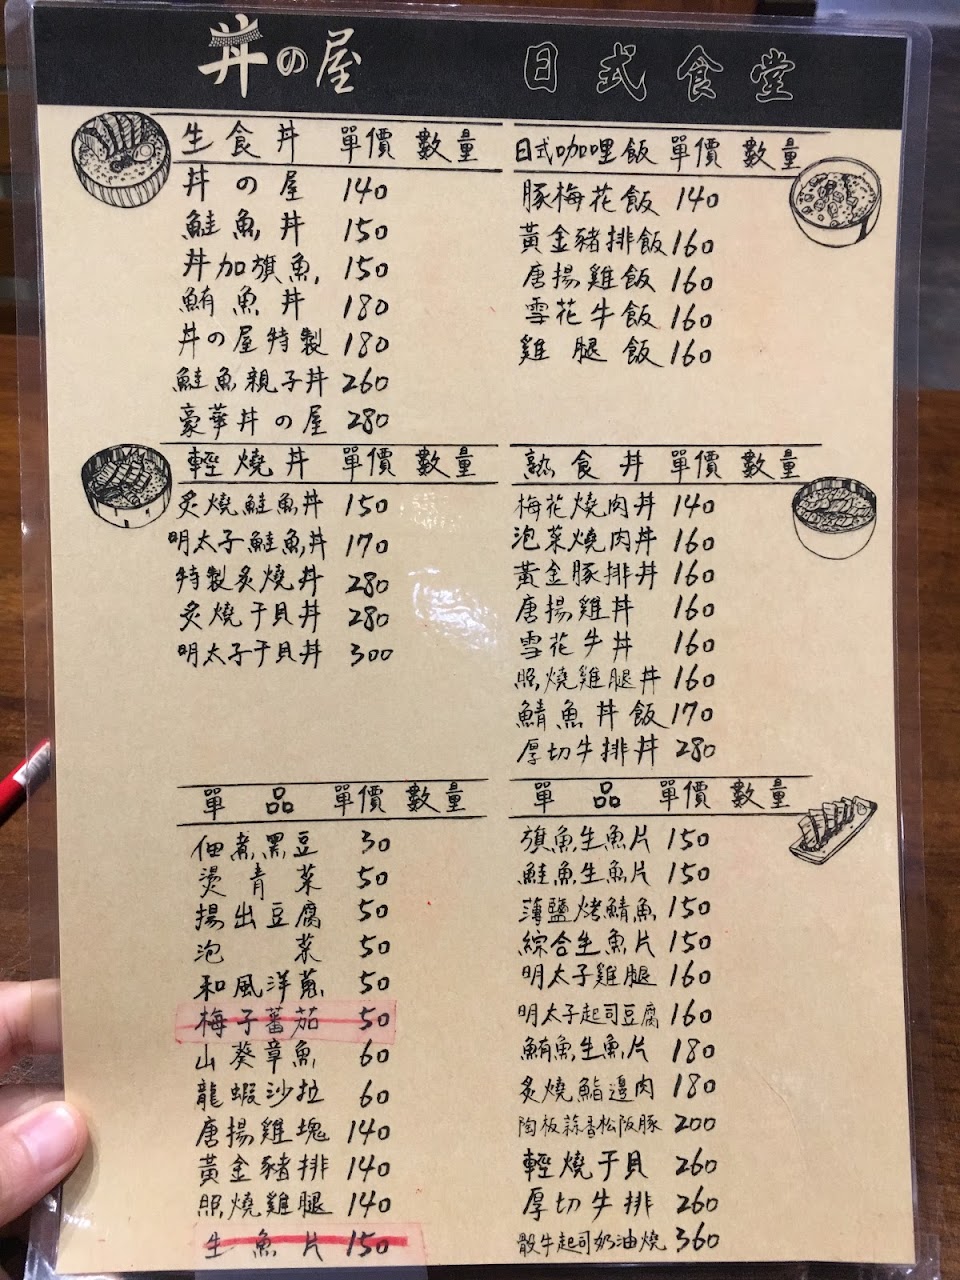 丼の屋 日式食堂
生食丼 單價 數量
丼の屋 140
鮭魚丼 150
丼加旗魚 150
鮪魚丼 180
丼の屋特製 180
鮭魚親子丼 260
豪華丼の屋 280
日式咖哩飯 單價 數量
豚梅花飯 140
黃金豬排飯 160
唐揚雞飯 160
雪花牛飯 160
雞腿飯 160
輕燒丼 單價 數量
炙燒鮭魚丼 150
明太子鮭魚丼 170
特製炙燒丼 280
炙燒干貝丼 280
明太子干貝丼 300
熟食丼 單價 數量
梅花燒肉丼 140
泡菜燒肉丼 160
黃金豚排丼 160
唐揚雞丼 160
雪花牛丼 160
照燒雞腿丼 160
鯖魚丼飯 170
厚切牛排丼 280
單品 單價 數量
佃煮黑豆 30
燙青菜 50
揚出豆腐 50
泡菜 50
和風洋蔥 50
梅子蕃茄 50
山葵章魚 60
龍蝦沙拉 60
唐揚雞塊 140
黃金豬排 140
照燒雞腿 140
生魚片 150
單品 單價 數量
旗魚生魚片 150
鮭魚生魚片 150
薄鹽烤鯖魚 150
綜合生魚片 150
明太子雞腿 160
明太子起司豆腐 160
鮪魚生魚片 180
炙燒鮨邊肉 180
陶板蒜香松阪豚 200
輕燒干貝 260
厚切牛排 260
骰牛起司奶油燒 360